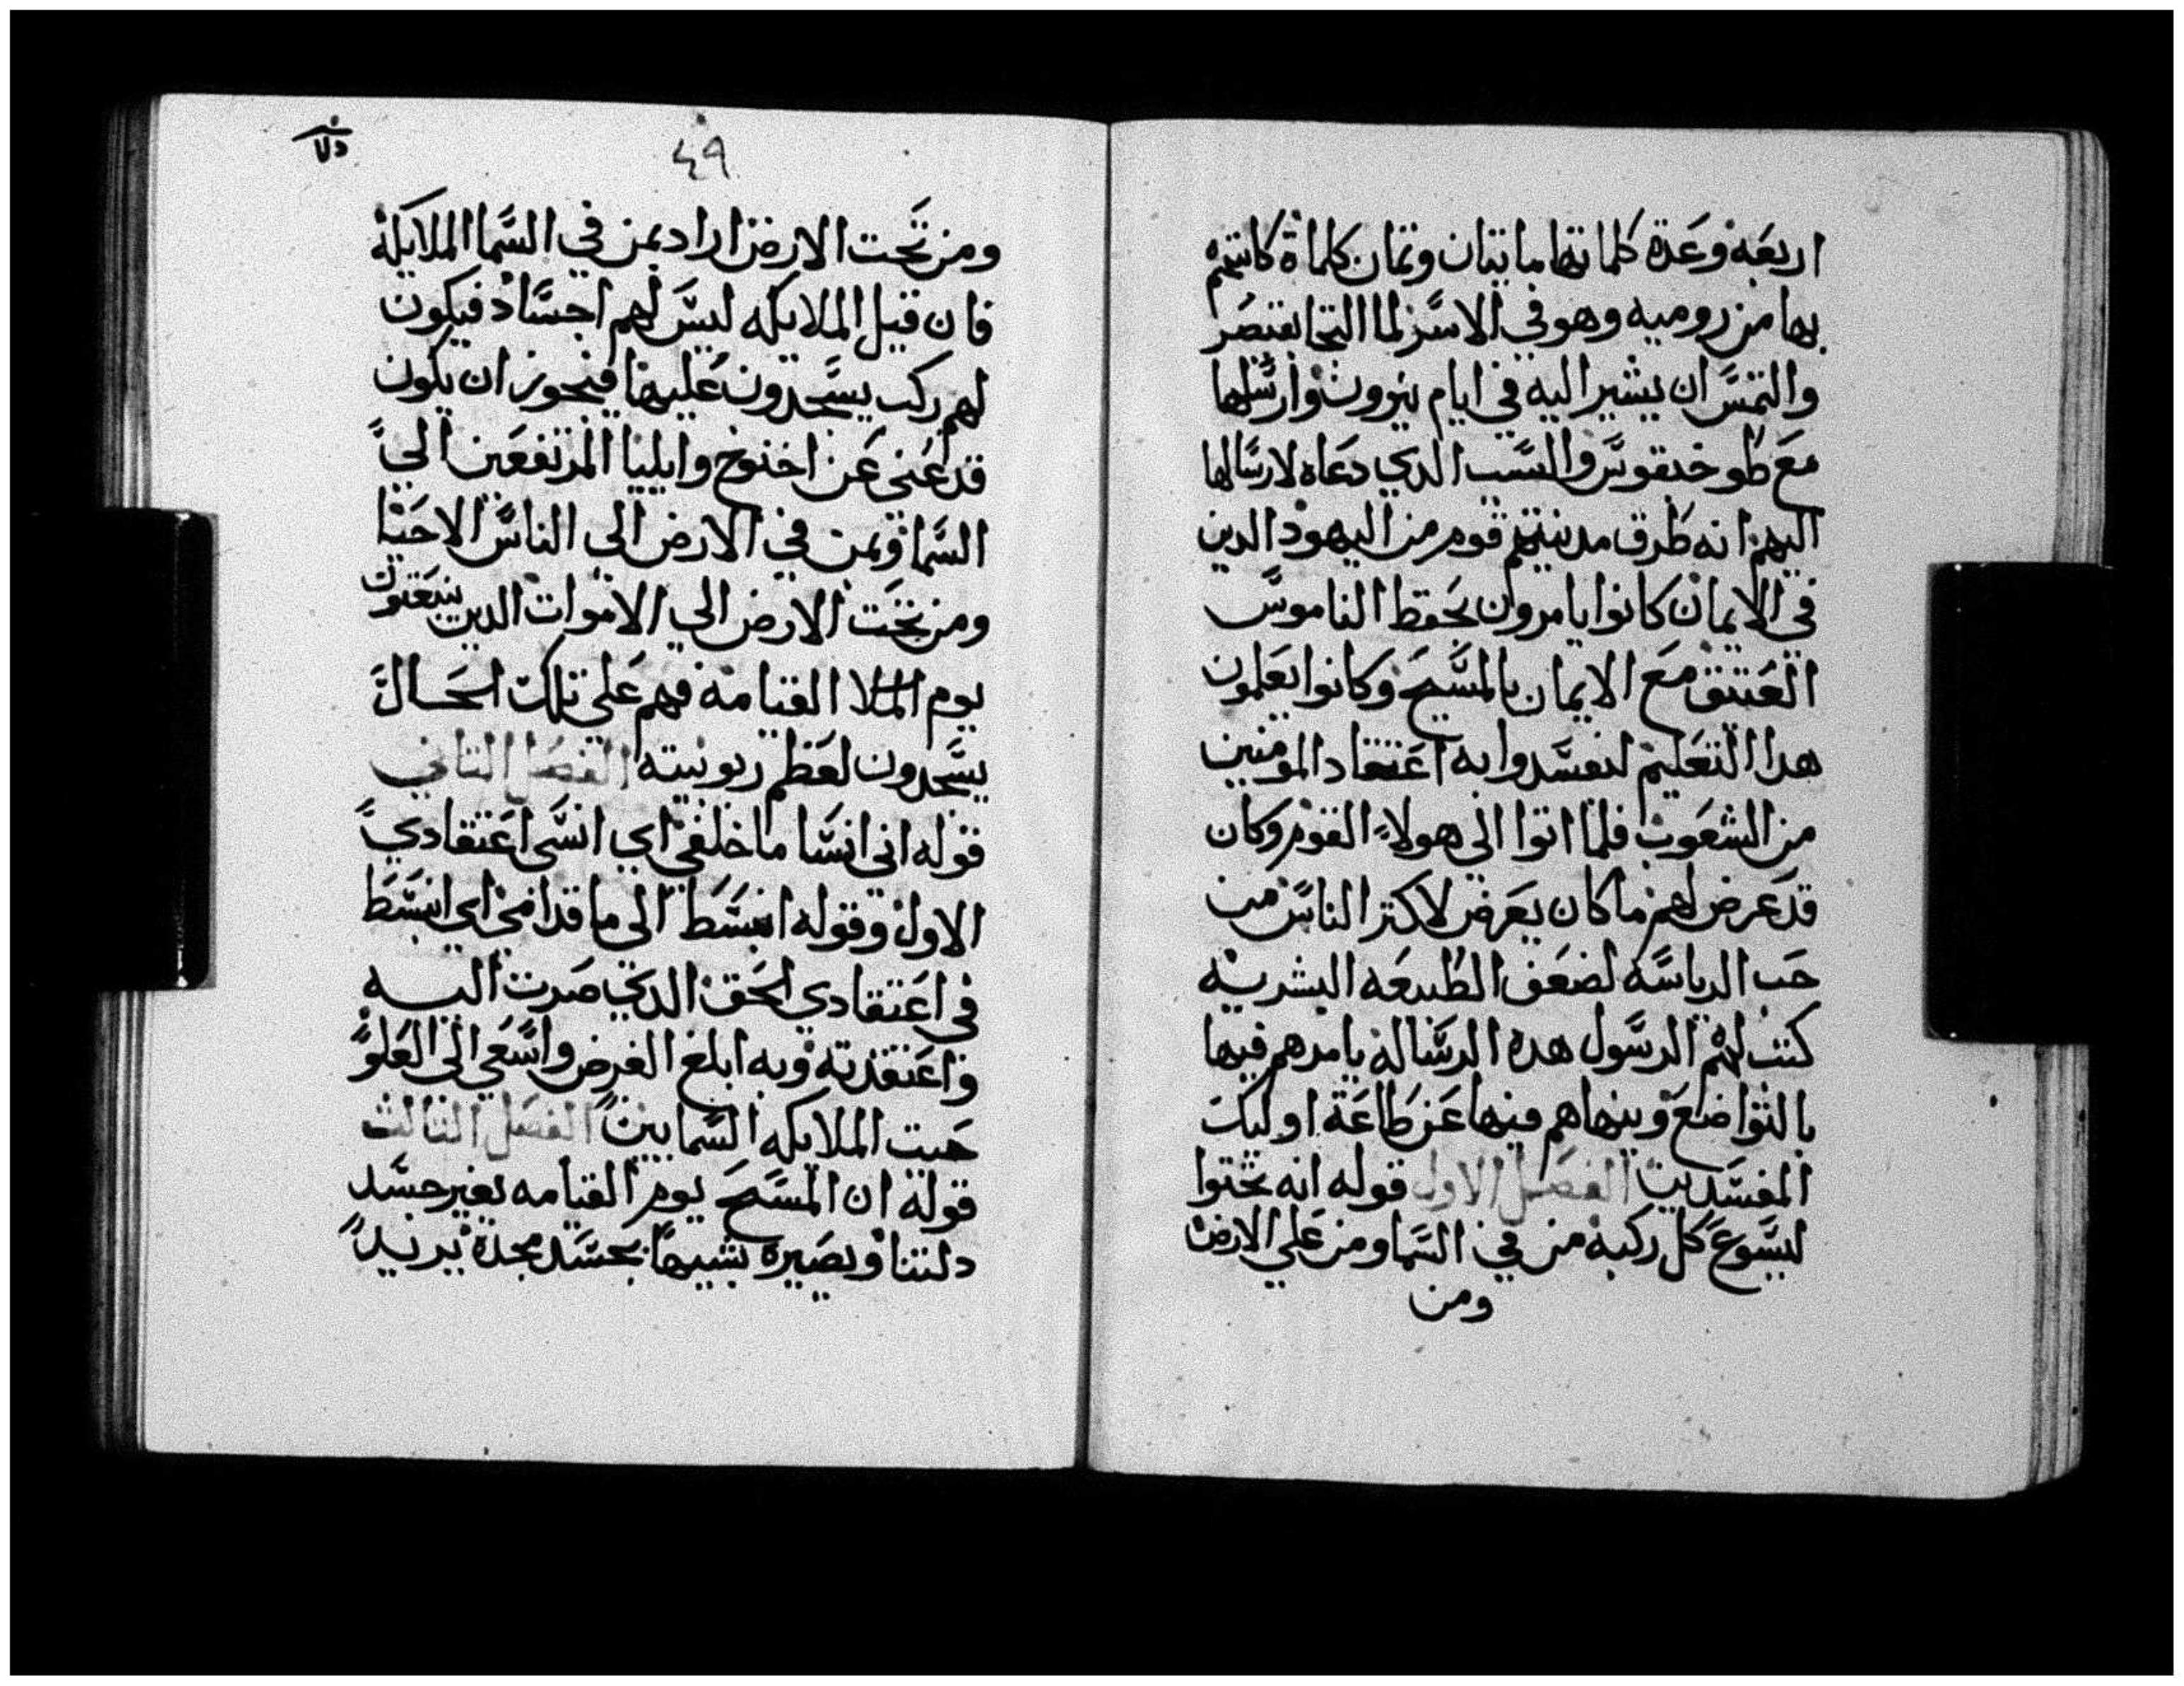 اربعه وعدة كلماتها مايتان وتمان كلماة كاتبهم
بها من روميه وهو في الاسر لما التجا لقيصر
والتمس ان يشير اليه في ايام نيرون وارسلها
مع طوخيقوس والسبب الدي دعاه لارسالها
اليهم انه طرق مدينتهم قوم من اليهود الدين
في الايمان كانوا يامروان بحفظ الناموس
العتيق مع الايمان بالمسيح وكانوا يعلمون
هدا التعليم ليفسدوا به اعتقاد المومنين
من الشعوب فلما اتوا الي هولاء القوم وكان
قد عرض لهم ما كان يعرض لاكتر الناس من
حب الرياسه لضعف الطبيعه البشريه
كتب لهم الرسول هده الرساله يامرهم فيها
بالتواضع وينهاهم فيها عن طاعة اوليك
المفسدين الفصل الاول قوله انه تجتوا
ليسوع كل ركبه من في السما ومن علي الارض
ومن
٤٩
ومن تحت الارض اراد بمن في السما الملايكة
فان قيل الملايكه ليس لهم اجساد فيكون
لهم ركب يسجدون عليها فيجوز ان يكون
قد اعني عن اخنوخ وايليا المرتفعين الي
السما وبمن في الارض الي الناس الاحيا
ومن تحت الارض الي الاموات الدين ينبعتون
يوم القيامه فهم علي تلك الحال
يسجدون لعظم ربوبيته الفصل التاني
قوله اني انسا ما خلفي اي انسي اعتقادي
الاول وقوله انبسط الي ما قدامي اي انبسط
في اعتقادي الحق الدي صرت اليه
واعتقدته وبه ابلغ الغرض واسعي الي العلو
حيت الملايكه السمايين الفصل التالت
قوله ان المسيح يوم القيامه يغير جسد
دلتنا ويصيره شبيها بجسد مجده يريد